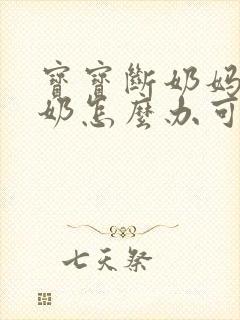 寶寶斷奶媽
奶怎麼办可
七天祭